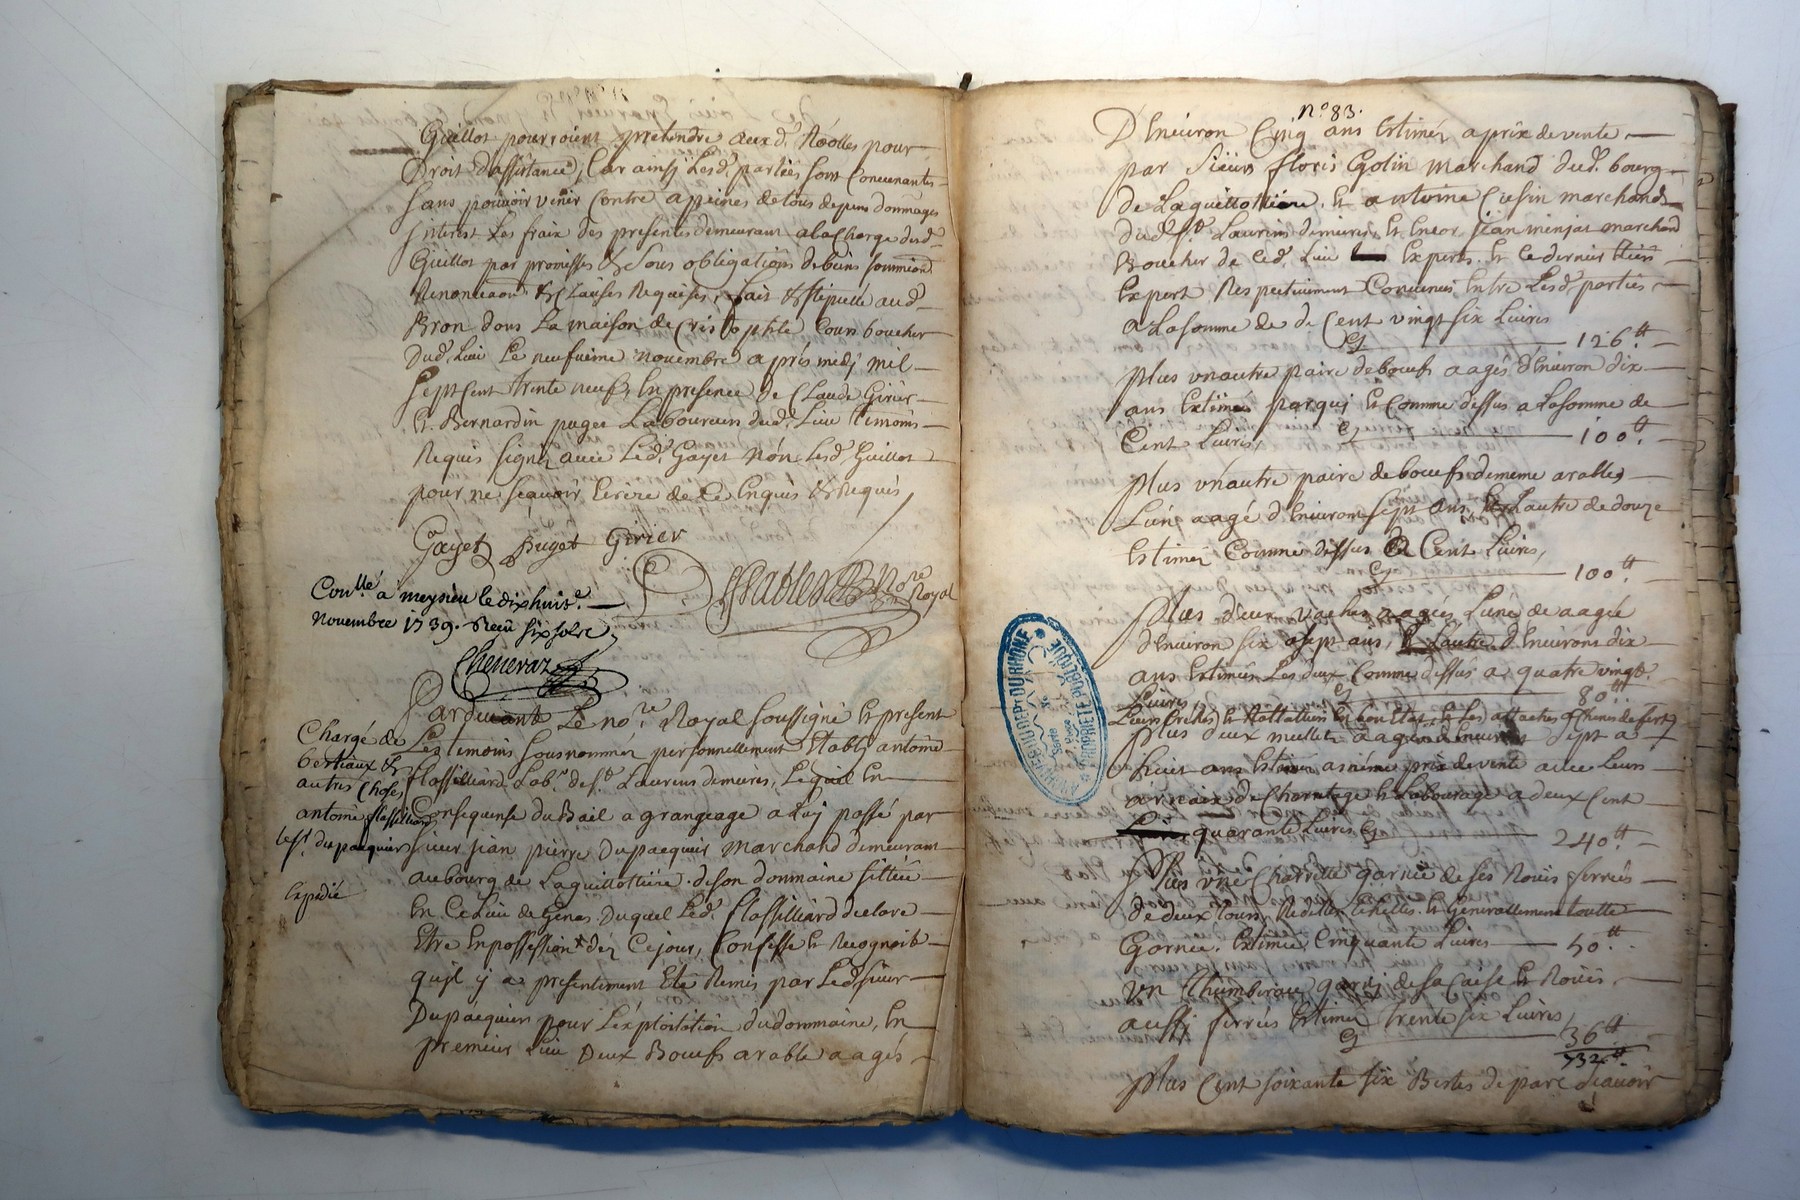 Guillot pourroient pretendre aux d. Roolles pour
Droit d'assistance, Car ainsy Lesd. parties sont Convenantes
sans pouvoir venir Contre a peines de tous depens dommages
Interest Les fraix des presentes demeurant a la Charge dud.
Guillot par promesses & sous obligations de biens soumions
Renonciaon & Clauses Requises, fait & stipullé aud.
Bron dans La maison de Cristophle Cours boucher
Dud. Lieu Le neufvieme novembre apres midj mil
sept cent trente neuf, En presence de Claude Girier
Et Bernardin puget Laboureurs dud. Lieu temoins
Requis signez avec Led. Gayet non Lesd. Guillot
pour ne sçavoir Ecrire de Ce Enquis & Requis
Gayet puget Girier
Nore Royal
Conllé a meysieu le dixhuite.
Novembre 1739. Reçu six sols
Cheneraz
Pardevant Le nore. Royal soussigné Et present
Chargé de
bestiaux &
autres Choses
antoine flassilliard
le sr. dupacquier
Expedié
Les temoins sousnommez personnellement Etably antoine
flassilliard Labr. de st. Laurens demeures, Lequel En
Consequense du Bail a grangeage a Luy passé par
sieur jean pierre Dupacquier Marchand demeurant
au bourg de Laguillottiere. de son dommaine sittüé
En Ce Lieu de Genas. Duquel Led. flassilliard declare
Etre En possession dez Ce jour, Confesse Et Recognoit
qu'jl y a presentement Eté Remis par Led. sieur
Dupacquier pour L'exploitation dud. dommaine, En
premier Lieu Deux Boeufs arable aagés
No. 83.
D'Environ Cinq ans Estimez a prix de vente
par sieurs floris Golin Marchand dud. bourg
de Laguillottiere. Et antoine Cusin marchand
dud. st. Laurens demeures, Et Encor jean menjat marchand
Boucher de Ced. Lieu Experts. Et Ce dernier tiers
Expert Respectivement Convenus Entre Lesd. parties
a La somme de de Cent vingt six Livres
Cy 126 tt.
Plus vn autre paire de boeufs aagés d'Environ dix
ans Estimes par quj Et Comme dessus a La somme de
Cent Livres, Cy 100 tt.
Plus vn autre paire de boeufs de meme arables
L'un aagé d'Environ sept ans Et L'autre de douze
Estimez Comme dessus a Cent Livres,
Cy 100 tt.
Plus deux vaches aagées L'une de aagée
d'Environ six a sept ans, Et L'autre d'Environ dix
ans Estimées Les deux Comme dessus a quatre vingt
Livres, Cy 80 tt.
Leurs Creches Et Rattelliers En bon Etat Et Les attaches Chenes de fert
Plus deux mullets aagés d'Environ sept a
huit ans Estimes a meme prix de vente avec Leurs
arnaix de Charriage Et Labourage a deux Cent
quarante Livres Cy 240 tt.
Plus vne Charrette garnie de ses Roües ferrées
de deux tours, Redelles Echelles Et Generallement toutte
Garnie. Estimée Cinquante Livres 50 tt.
Vn Thumbereau garnj de sa Caise Et Roües
aussi ferrées Estimez trente six Livres,
Cy 36 tt.
732 tt.
Plus Cent soixante six Bestes de parc sçavoir
ARCHIVES DU DEPT DU RHONE
PROPRIETE PUBLIQUE